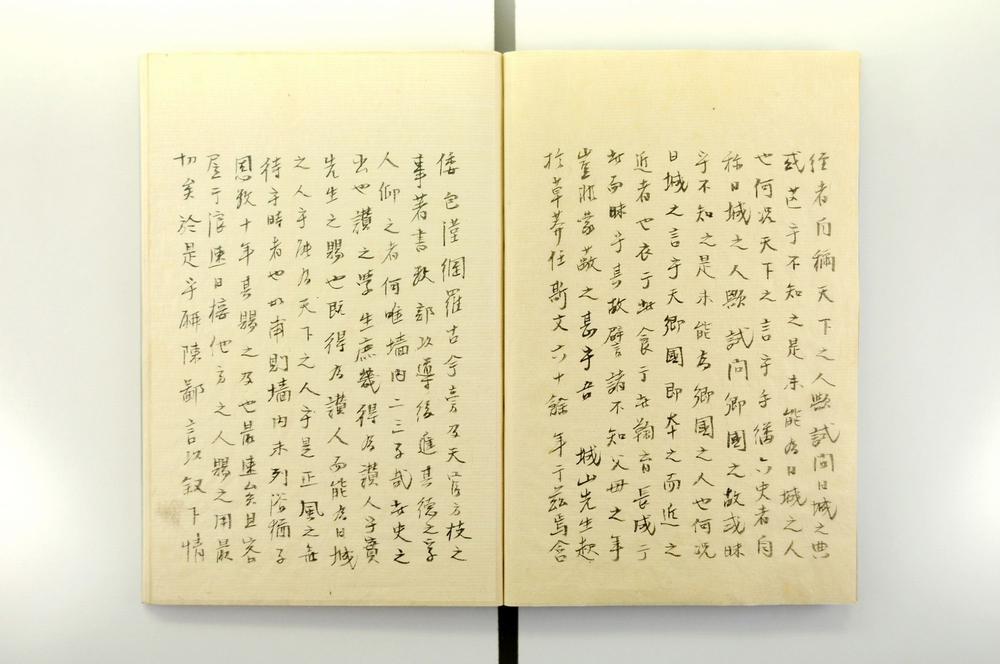 徑者自稱天下之人歟試問日域之典
或芒乎不知之是未能為日域之人
也何況天下之言乎手繙六史者自
称日域之人歟試問鄉國之故或昧
乎不知之是未能為鄉國之人也何況
日域之言乎夫鄉國即本之而近之
近者也衣于此食于此鞠育長成于
此而昧乎其故譬諸不知父母之年
豈非蒙蔽之甚乎吾 城山先生起
於草莽任斯文六十餘年于茲焉含
倭包漢網羅古今旁及天官方技之
事著書數部以導後進其德之孚
人仰之者何唯墻內二三子哉此史之
出也讚之學生庶幾得為讚人乎實
先生之賜也既得為讚人而能為日域
之人乎延為天下之人乎是正風之每
待乎時者也如甫則墻內未列浴猶子
恩數十年其賜之及也最速矣且客
居于浪速日接他方之人賜之用最
切矣於是乎肆陳鄙言以叙下情